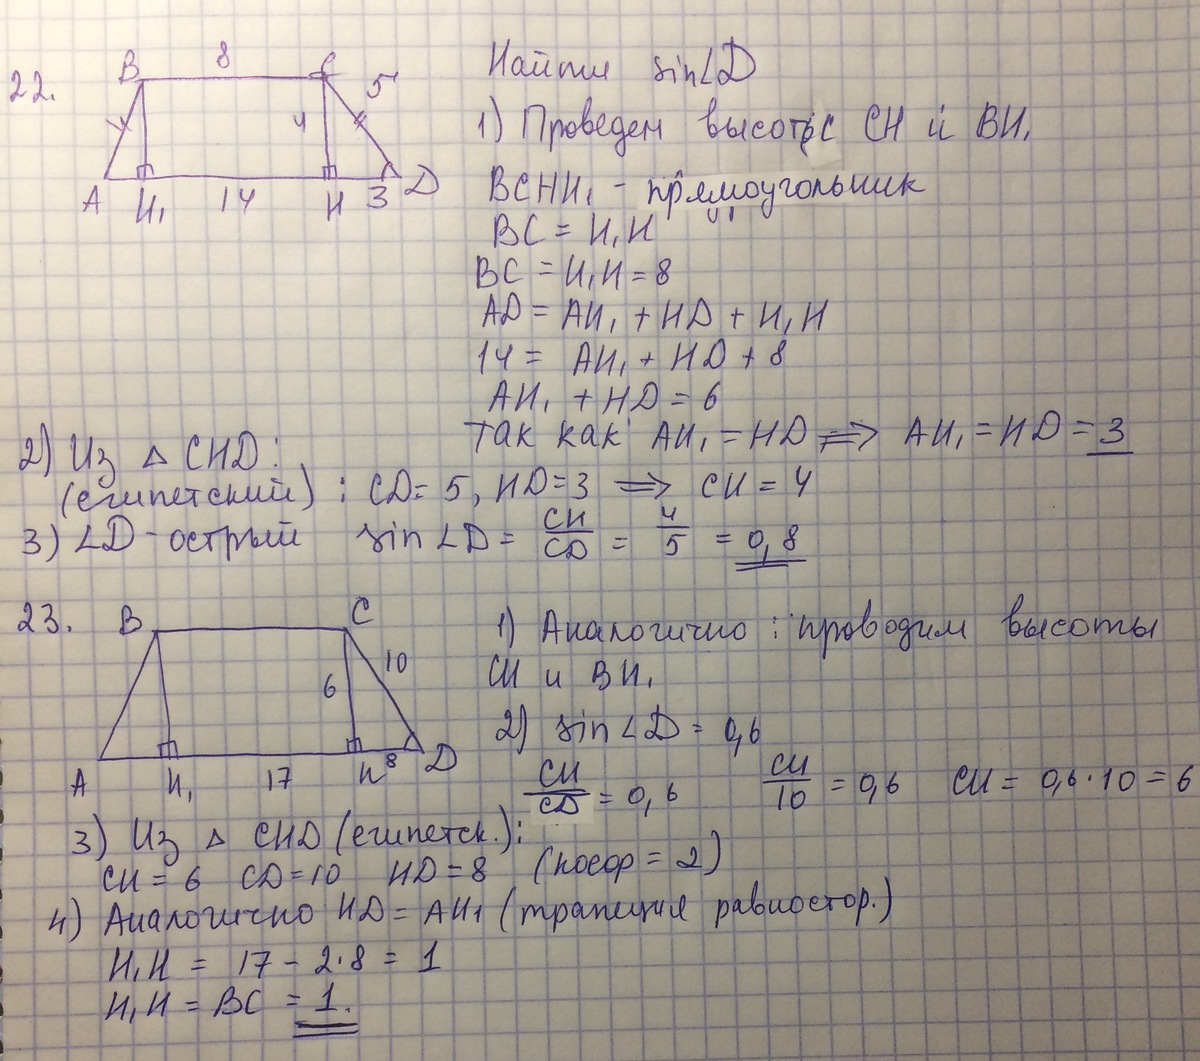 22.
B 8 C 5
4
A H₁ 14 H 3 D
Найти sin∠D
1) Проведем высоты CH и BH₁
BCHH₁ - прямоугольник
BC = H₁H
BC = H₁H = 8
AD = AH₁ + HD + H₁H
14 = AH₁ + HD + 8
AH₁ + HD = 6
так как AH₁ = HD ⟹ AH₁ = HD = 3
2) Из △ CHD:
(египетский): CD = 5, HD = 3 ⟹ CH = 4
3) ∠D - острый sin∠D = CH/CD = 4/5 = 0,8
23.
B C
6 10
A H₁ 17 H 8 D
1) Аналогично: проводим высоты
CH и BH₁
2) sin∠D = 0,6
CH/CD = 0,6 CH/10 = 0,6 CH = 0,6·10 = 6
3) Из △ CHD (египетск.):
CH = 6 CD = 10 HD = 8 (коэф = 2)
4) Аналогично HD = AH₁ (трапеция равностор.)
H₁H = 17 - 2·8 = 1
H₁H = BC = 1.